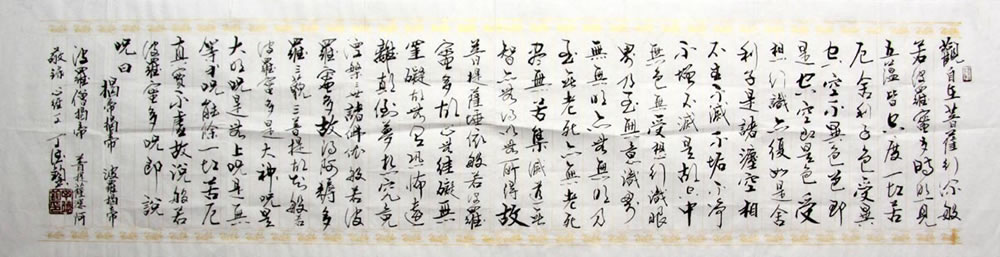 觀自在菩薩行深般
若波羅蜜多時照見
五蘊皆空度一切苦
厄舍利子色不異
空空不異色色即
是空空即是色受
想行識亦復如是舍
利子是諸法空相
不生不滅不垢不淨
不增不減是故空中
無色無受想行識眼
界乃至無意識界
無無明亦無無明盡
乃至無老死亦無老死
盡無苦集滅道無
智亦無得以無所得故
菩提薩埵依般若波羅
蜜多故心無罣礙無
罣礙故無有恐怖遠
離顛倒夢想究竟
涅槃三世諸佛依般若波
羅蜜多故得阿耨多
羅三藐三菩提故知般若
波羅蜜多是大神咒是
大明咒是無上咒是無
等等咒能除一切苦厄
真實不虛故說般若
波羅蜜多咒即說
咒曰
揭帝揭帝 波羅揭帝
波羅僧揭帝 菩提薩婆訶
敬錄心經